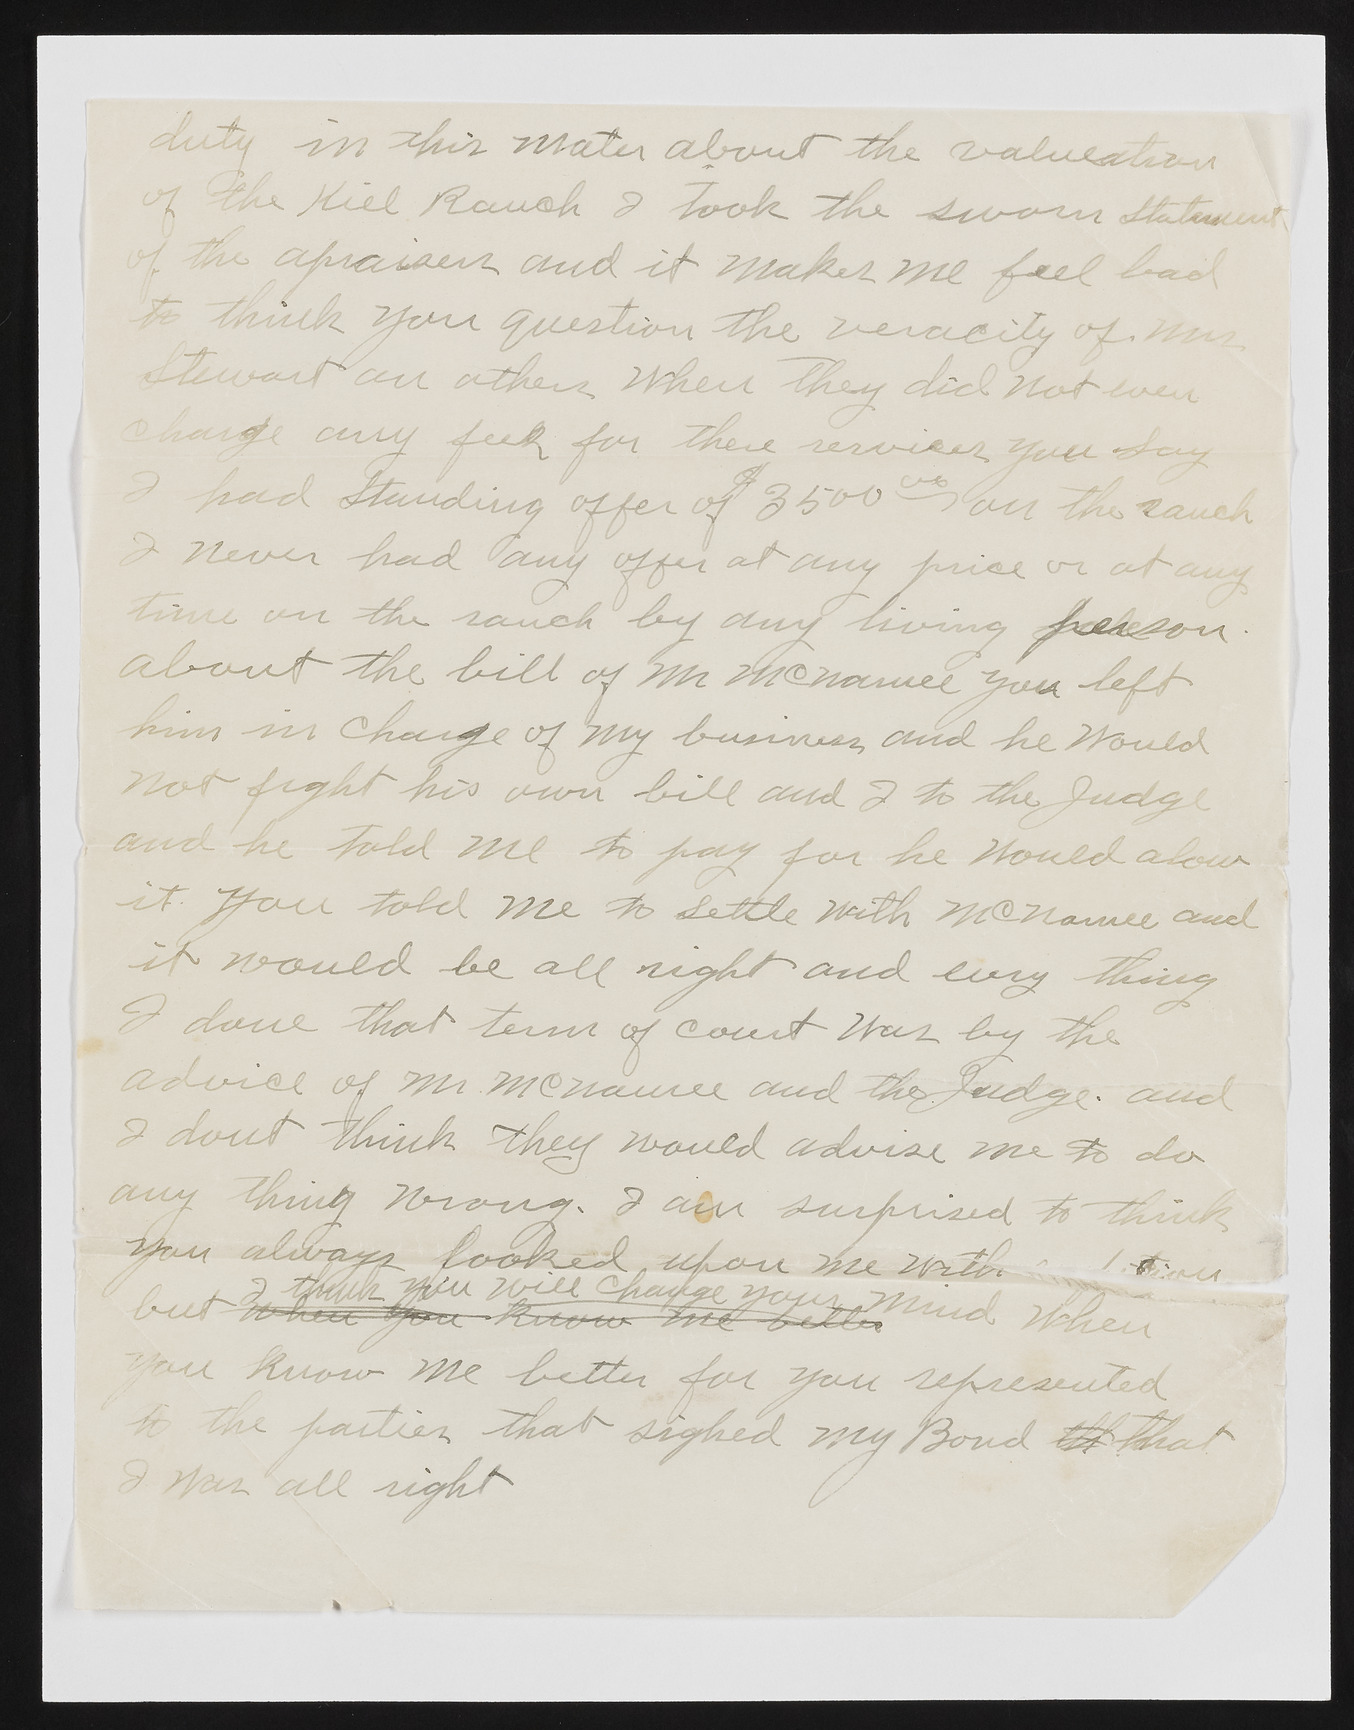 duty in this mater about the valueation
of the Kiel Ranch I took the sworn statement
of the apraisers and it makes me feel bad
to think you question the veracity of Mrs
Stewart an others When they did not even
charge any feek for there services you say
I had standing offer of $3500 00 on the ranch
I never had any offer at any price or at any
time on the ranch by any living person.
about the bill of Mr McNamee you left
him in charge of my business and he Would
not fight his own bill and I to the Judge
and he told me to pay for he would alow
it. You told me to settle with McNamee and
it would be all right and evry thing
I done that term of court Was by the
advice of Mr. McNamee and the Judge. and
I dont think they would advise me to do
any thing wrong. I am surprised to think
you always looked upon me with
I think you will change your mind When
but when you know me better
you know me better for you represented
to the parties that sighed my Bond tht that
I was all right